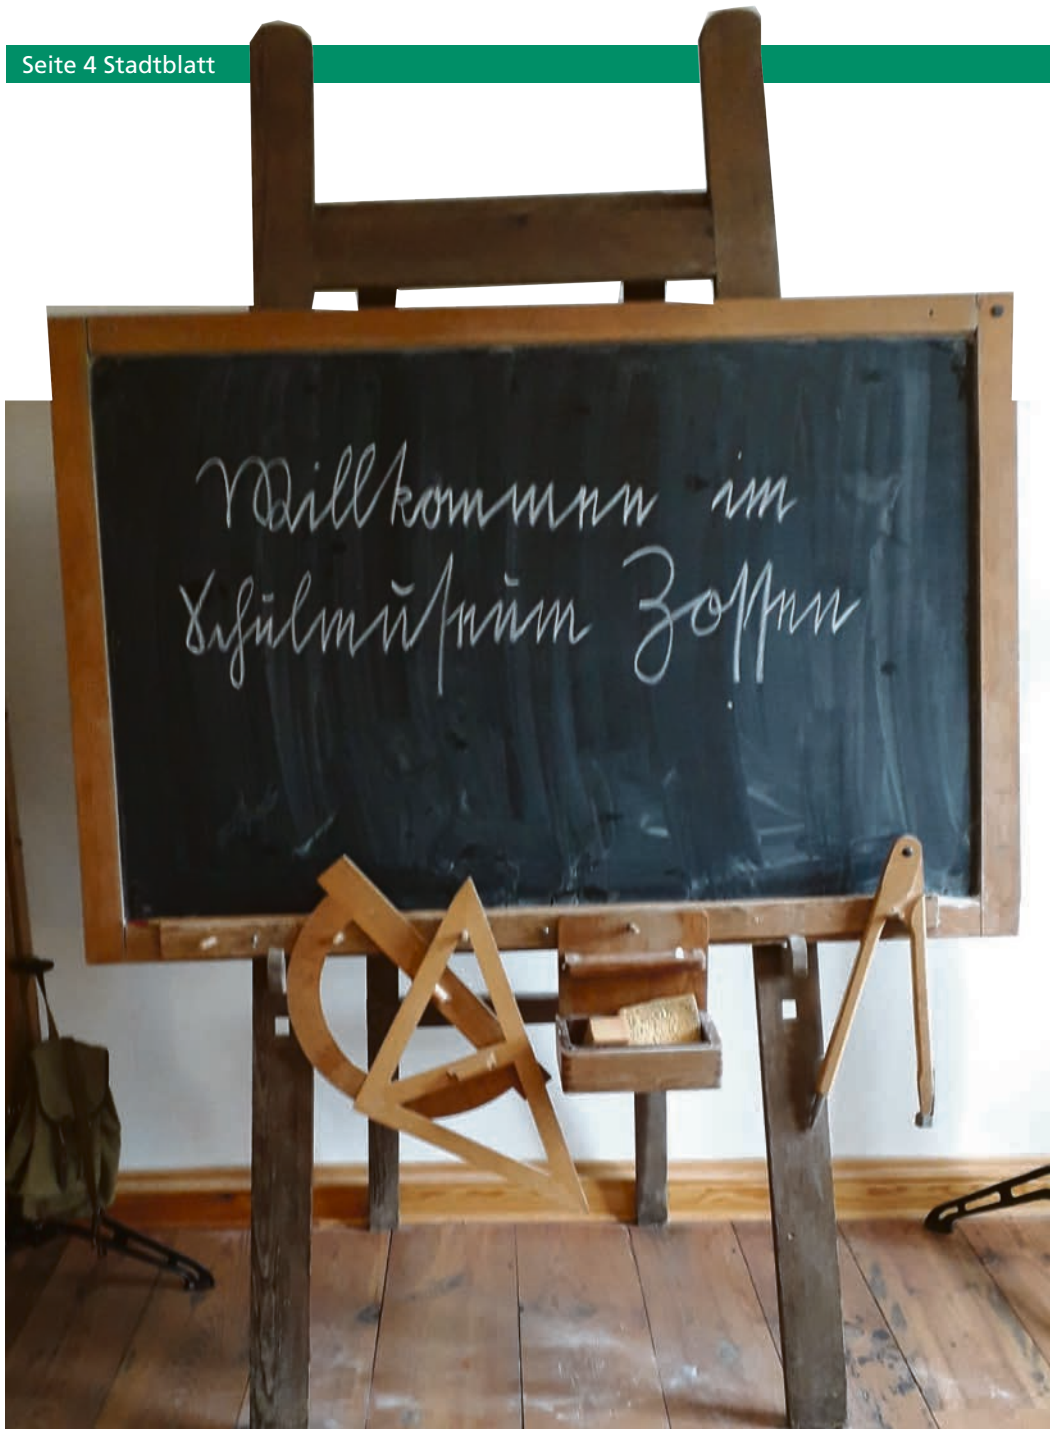 Seite 4 Stadtblatt
Willkommen im
Schulmuseum Zossen